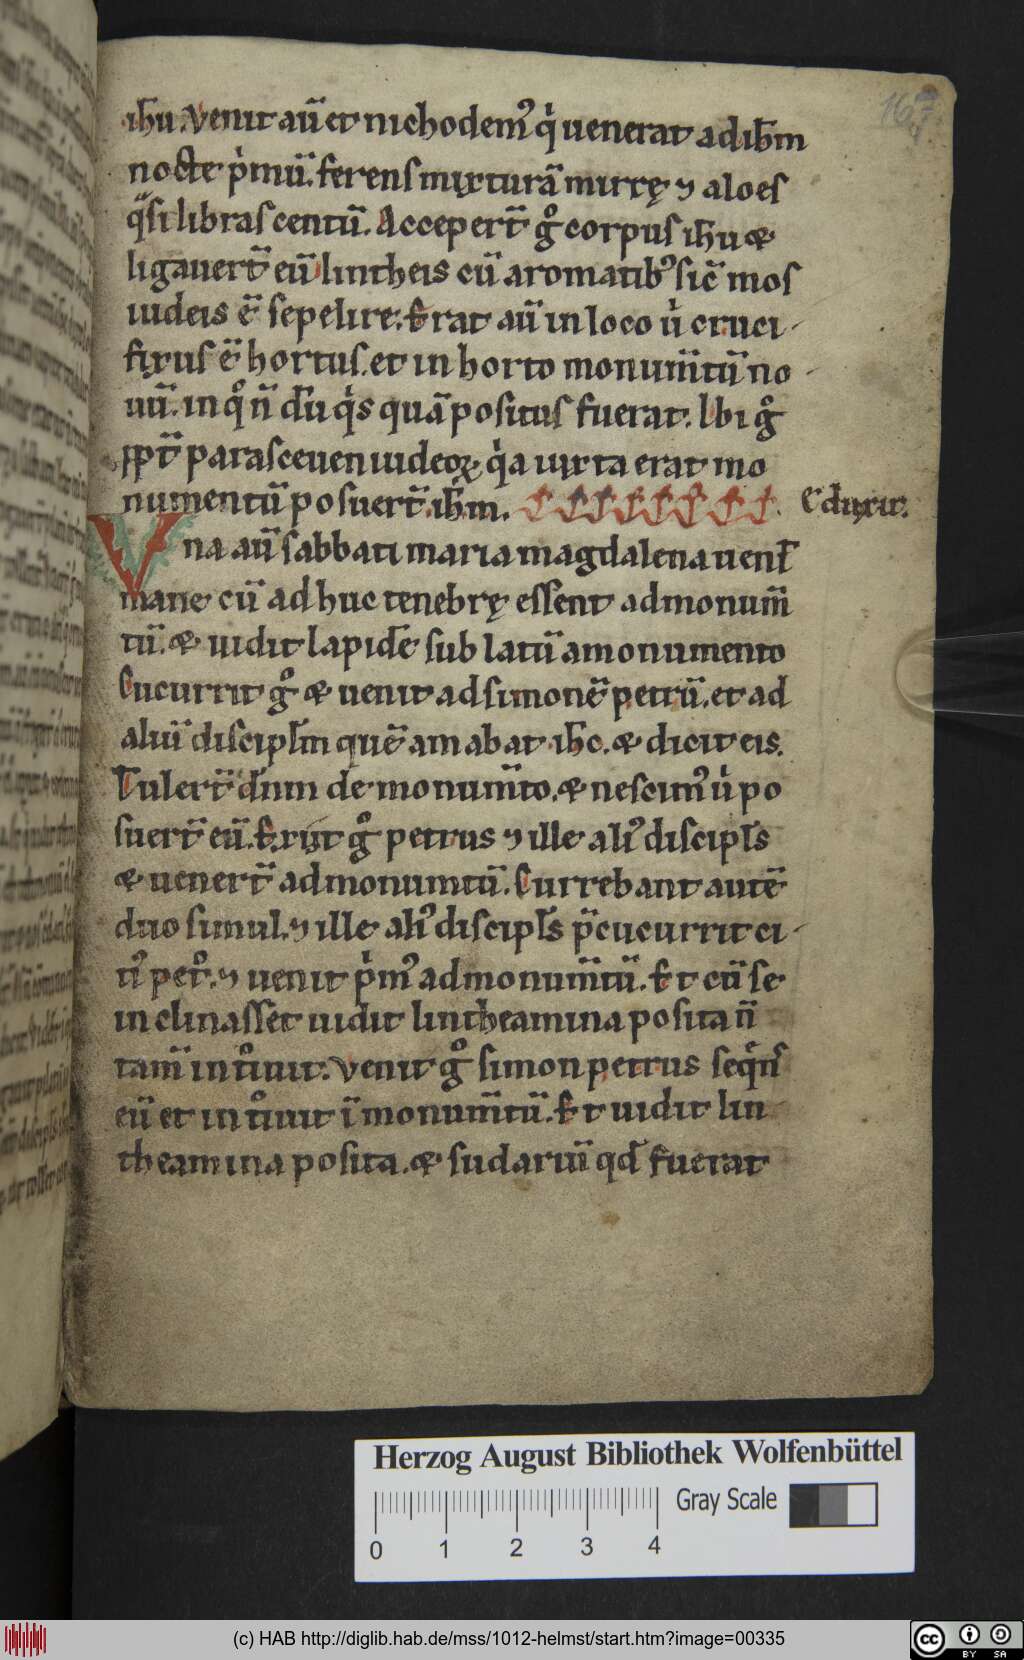 167
ih̅u. Venit au̅ et nichodem᷒ qⁱ uenerat ad ih̅m
nocte pⁱmu̅. ferens mixtura̅ mirrę ⁊ aloes
qᵃsi libras centu̅. Accepert̅ gͦ corpus ih̅u &
ligauert̅ eu̅ lintheis cu̅ aromatib᷒ sic̅ mos
iudeis e̅ sepelire. Erat au̅ in loco uⁱ cruci-
fixus e̅ hortus. et in horto monum̅tu̅ no-
uu̅. in qͦ n̅ du̅ qⁱs qua̅ positus fuerat. Ibi gͦ
ppt̅ parasceuen iudeoꝝ qⁱa iuxta erat mo
numentu̅ posuert̅ ih̅m.
Eduxit.
Vna au̅ sabbati maria magdalena uenit̅
mane cu̅ adhuc tenebrę essent ad monum̅
tu̅. & uidit lapide̅ sublatu̅ a monumento
Cucurrit gͦ & uenit ad simone̅ petru̅. et ad
aliu̅ discipl̅m que̅ amabat ih̅c. & dicit eis.
Tulert̅ dn̅m de monum̅to. & nescim᷒ uⁱ po
suert̅ eu̅. Exiit gͦ petrus ⁊ ille ali᷒ discipl̅s
& uenert̅ ad monumtu̅. Currebant aute̅
duo simul. ⁊ ille ali᷒ discipl̅s p̅cucurrit ci-
ti᷒ petͦ. ⁊ uenit pⁱm᷒ ad monum̅tu̅. Et cu̅ se
inclinasset uidit lintheamina posita n̅
tam̅ intͦiuit. Venit gͦ simon petrus seqn̅s
eu̅ et intͦiuit i̅ monum̅tu̅. Et uidit lin-
theamina posita. & sudariu̅ qd̅ fuerat
Herzog August Bibliothek Wolfenbüttel
Gray Scale
0 1 2 3 4
(c) HAB http://diglib.hab.de/mss/1012-helmst/start.htm?image=00335
cc BY SA